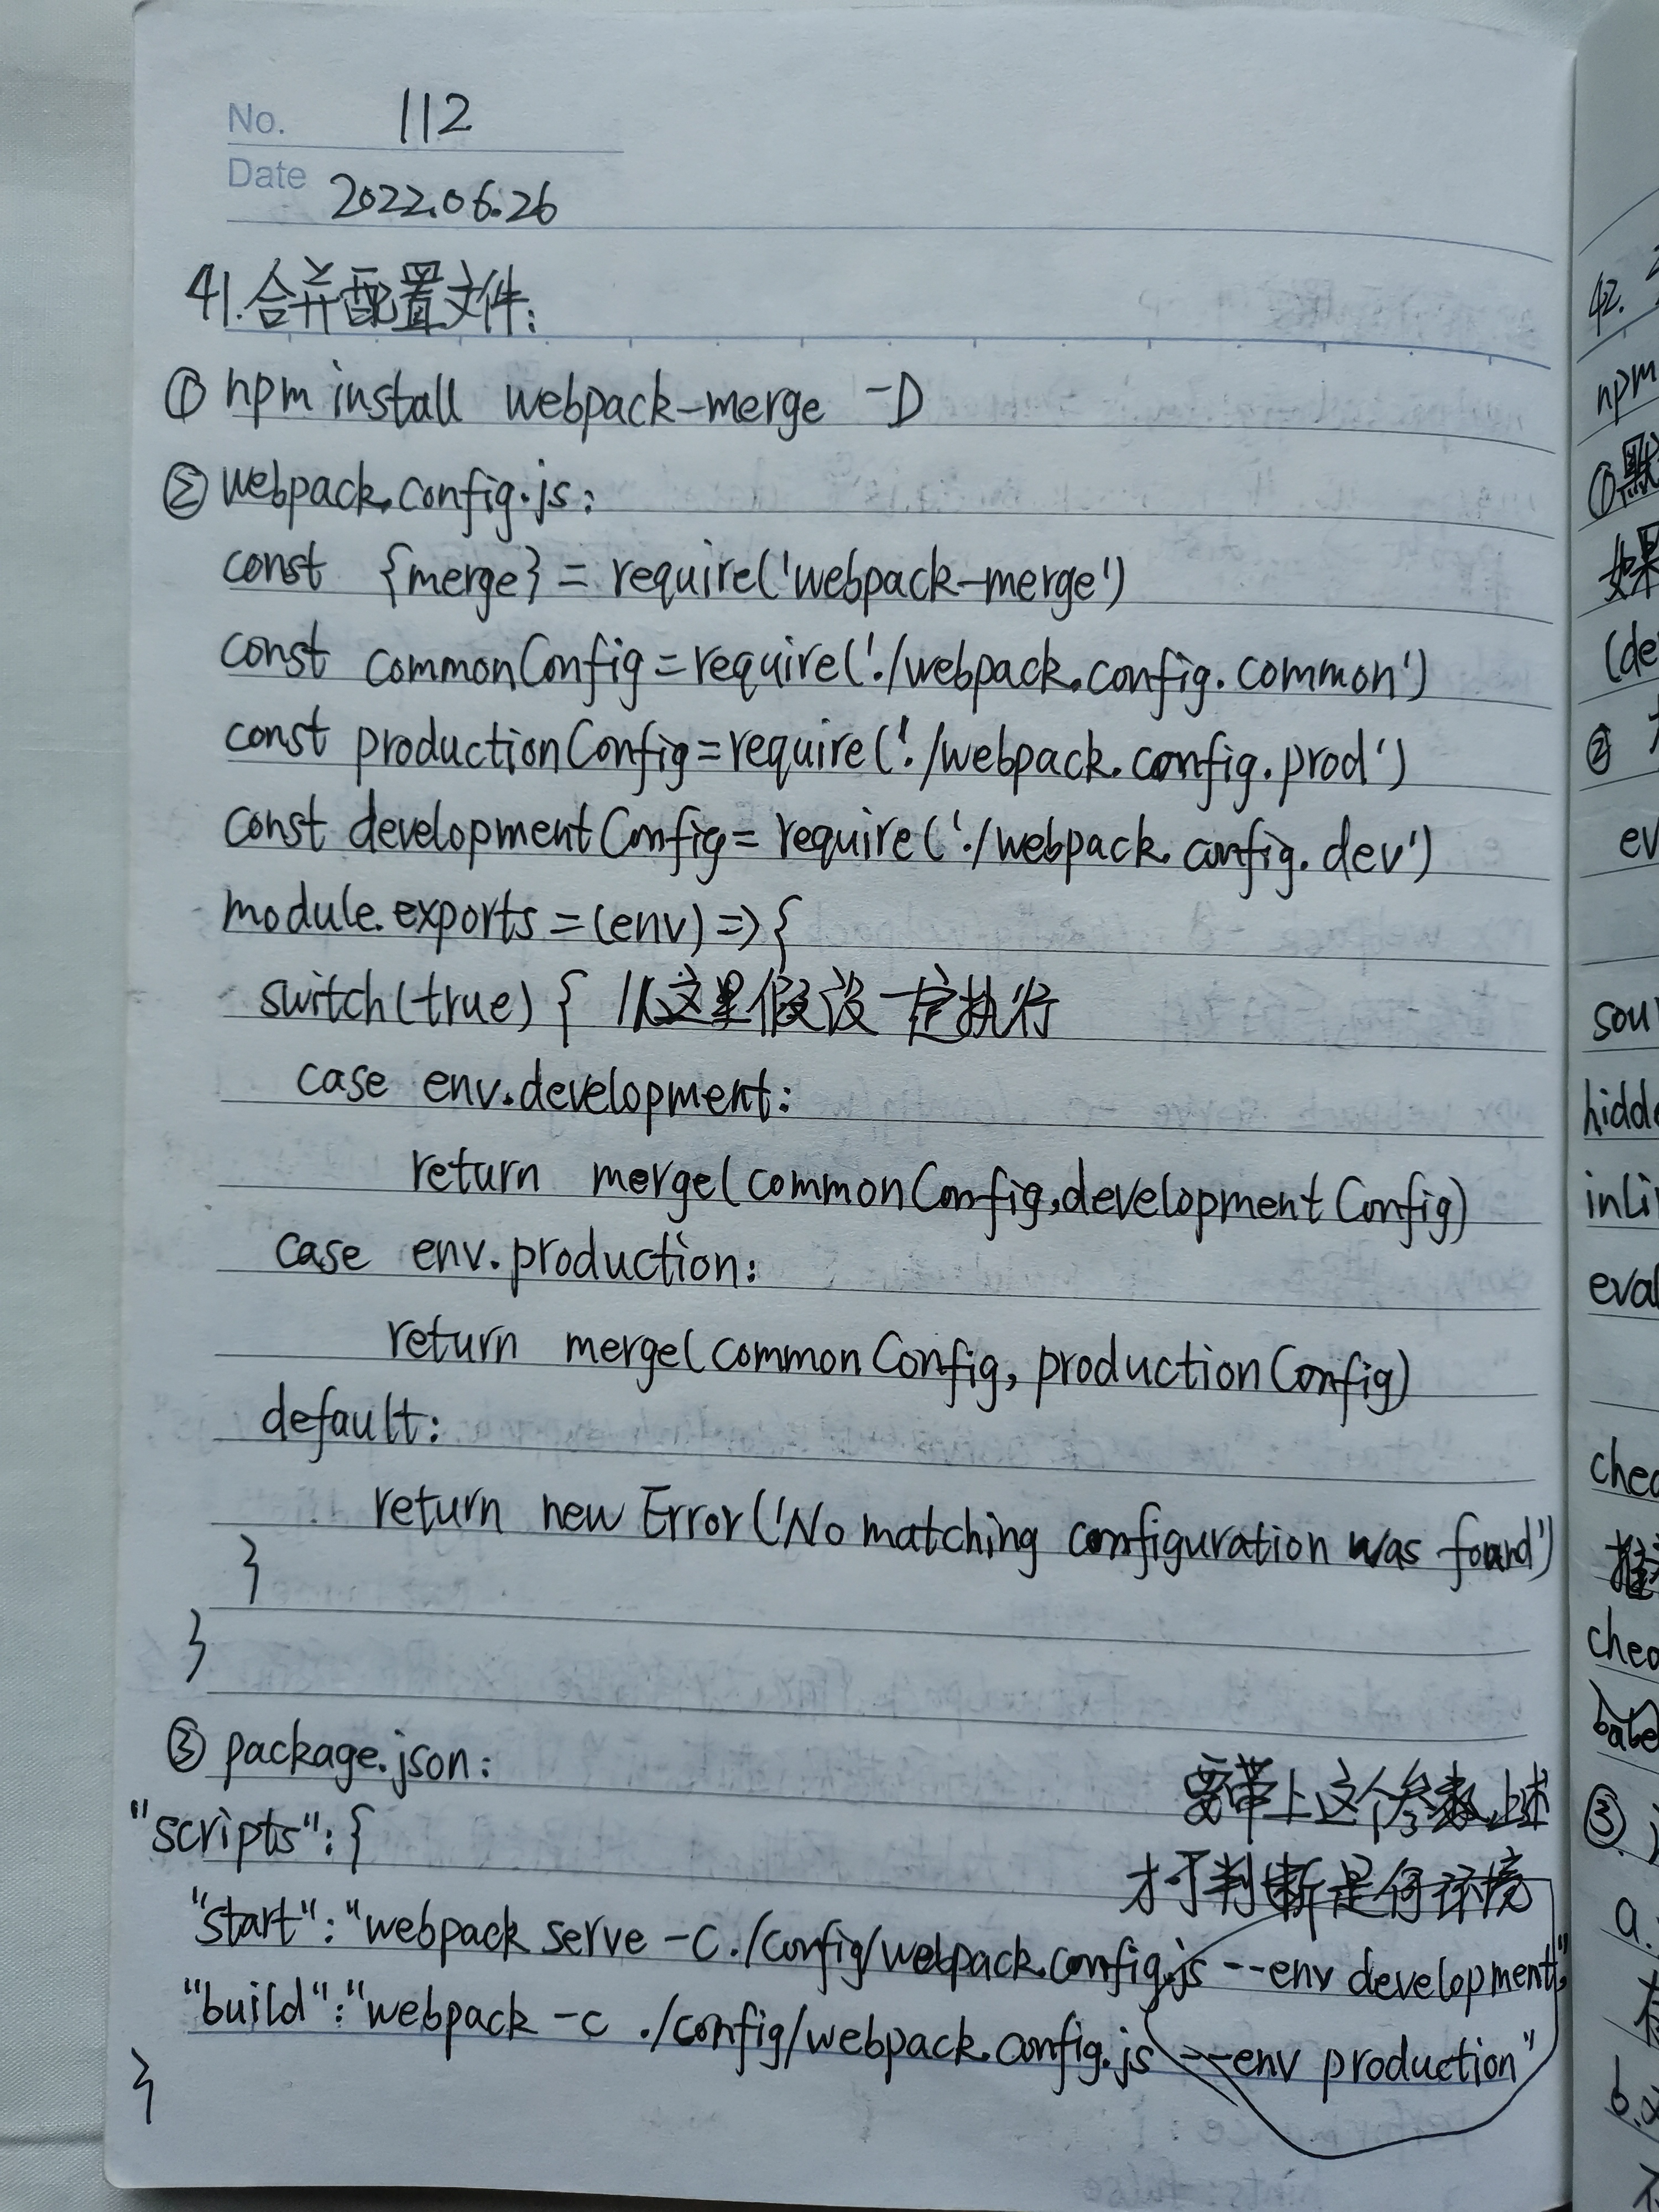 No. 112
Date 2022.06.26
41.合并配置文件:
① npm install webpack-merge -D
② webpack.config.js:
const {merge} = require('webpack-merge')
const commonConfig=require('./webpack.config.common')
const productionConfig=require('./webpack.config.prod')
const developmentConfig= require('./webpack.config.dev')
module.exports=(env)=>{
switch(true) { //这里假设一定执行
case env.development:
return merge(commonConfig,developmentConfig)
case env.production:
return merge(commonConfig, productionConfig)
default:
return new Error('No matching configuration was found')
}
}
③ package.json:
要带上这个参数,上述
"scripts":{
才可判断是何环境
"start":"webpack serve -c ./config/webpack.config.js --env development",
"build":"webpack -c ./config/webpack.config.js --env production"
}
42.
npm
①默
如果
(de
②
ev
sou
hidde
inli
eval
chea
推
chea
babe
③
a.
b.